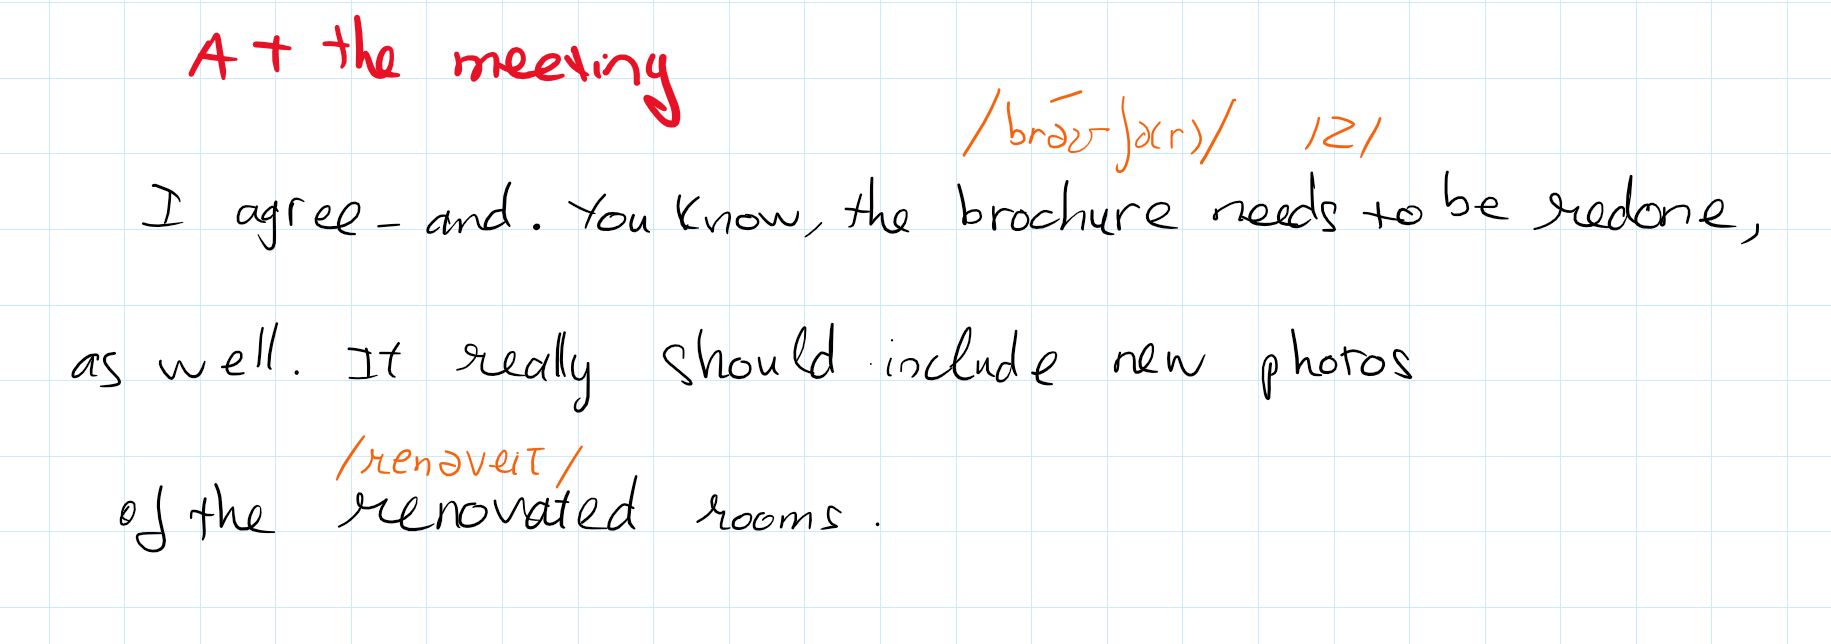 At the meeting
/brəʊʃə(r)/ /z/
I agree - and. You know, the brochure needs to be redone,
as well. It really should include new photos
/renəveit/
of the renovated rooms.